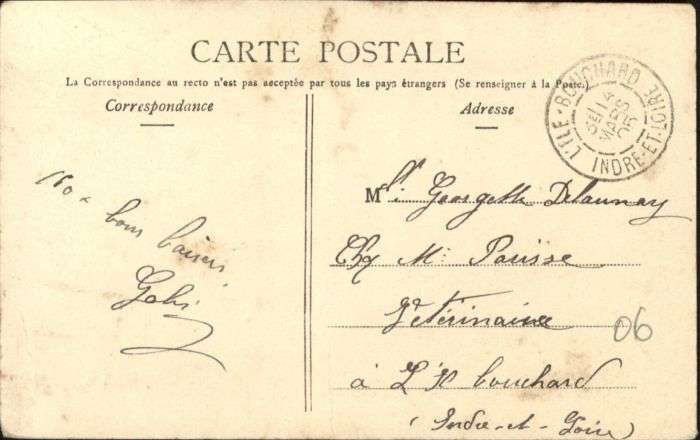 CARTE POSTALE
La Correspondance au recto n'est pas acceptée par tous les pays étrangers (Se renseigner à la Poste.)
Correspondance
Adresse
L'ILE-BOUCHARD
MARS
05
INDRE-ET-LOIRE
bons baisers
M Delaunay
Chez Mr
Vétérinaire
06
à L'Ile bouchard
(Indre-et-Loire)